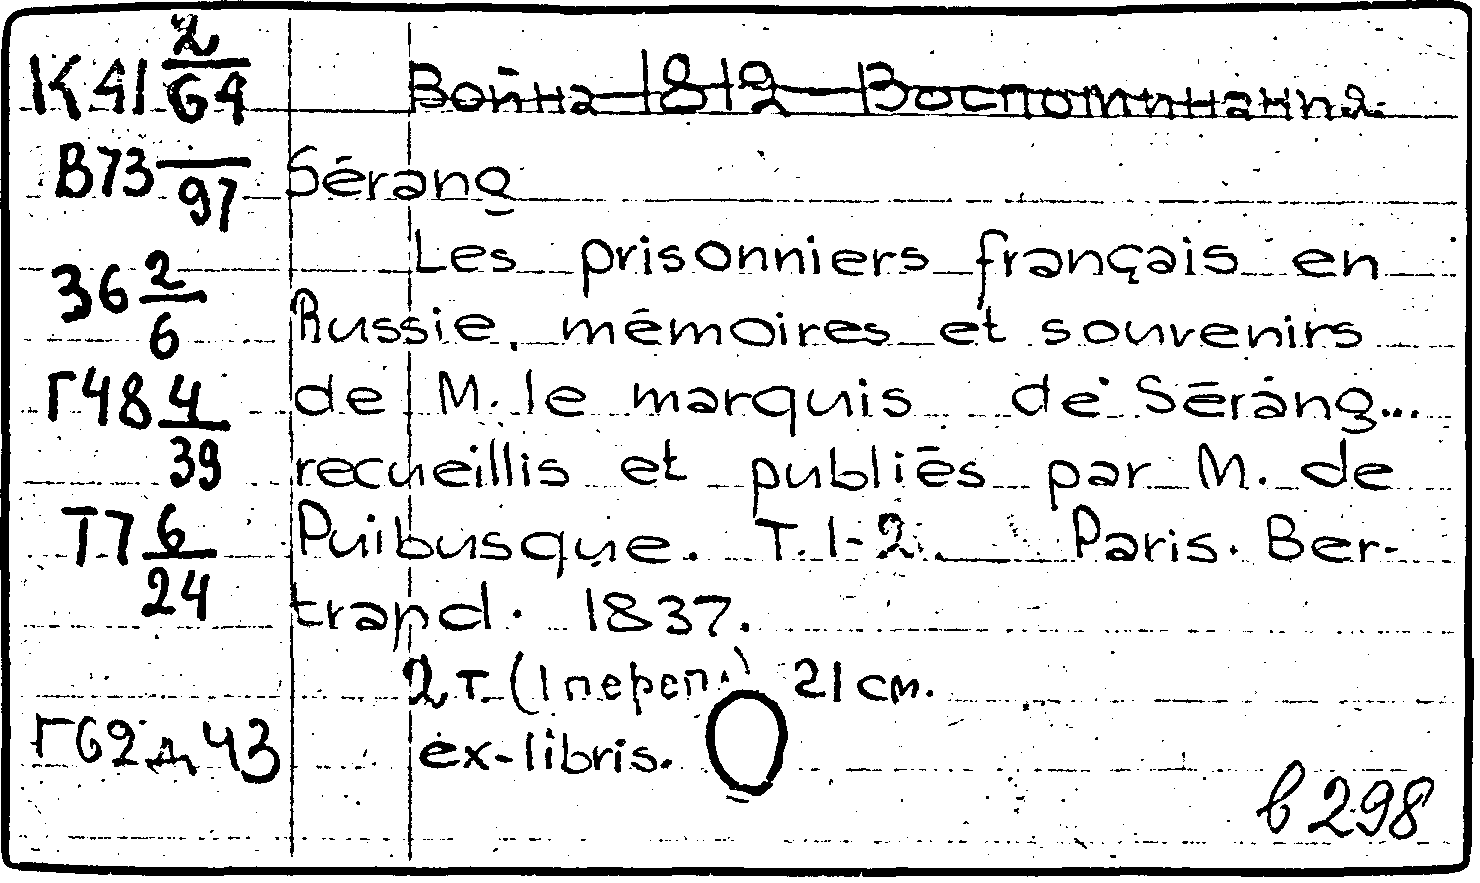 К41 2/64 Война 1812 — Воспоминания.
В73 —/97 Sérang
Les prisonniers français en
36 2/6 Russie, mémoires et souvenirs
Г48 4/39 de M. le marquis de Sérang...
recueillis et publiés par M. de
Т7 6/24 Puibusque. T. 1-2. — Paris. Ber-
trand. 1837.
2 т. (1 переп.) 21 см.
Г62д43 ex-libris.
в 298